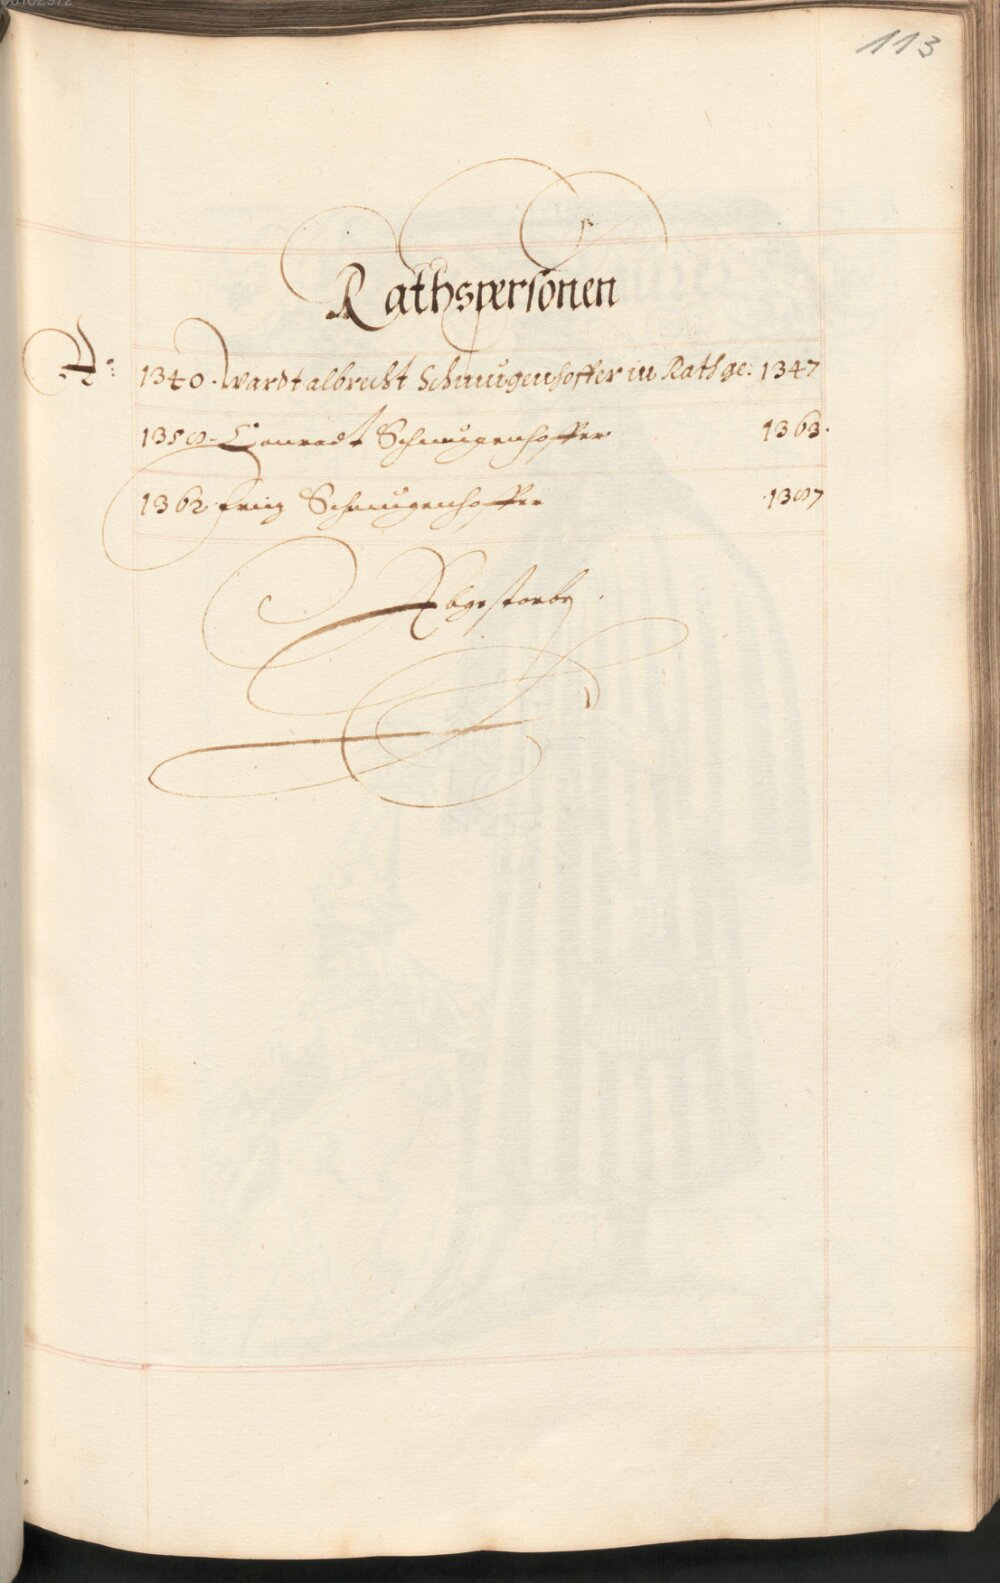 113
Rathspersonen
Aº: 1340. Wardt albrecht Schmugenhoffer in Rath ge: 1347
1358. Conradt Schmugenhoffer 1363.
1362 Fritz Schmugenhoffer 1387
Abgestorbn.